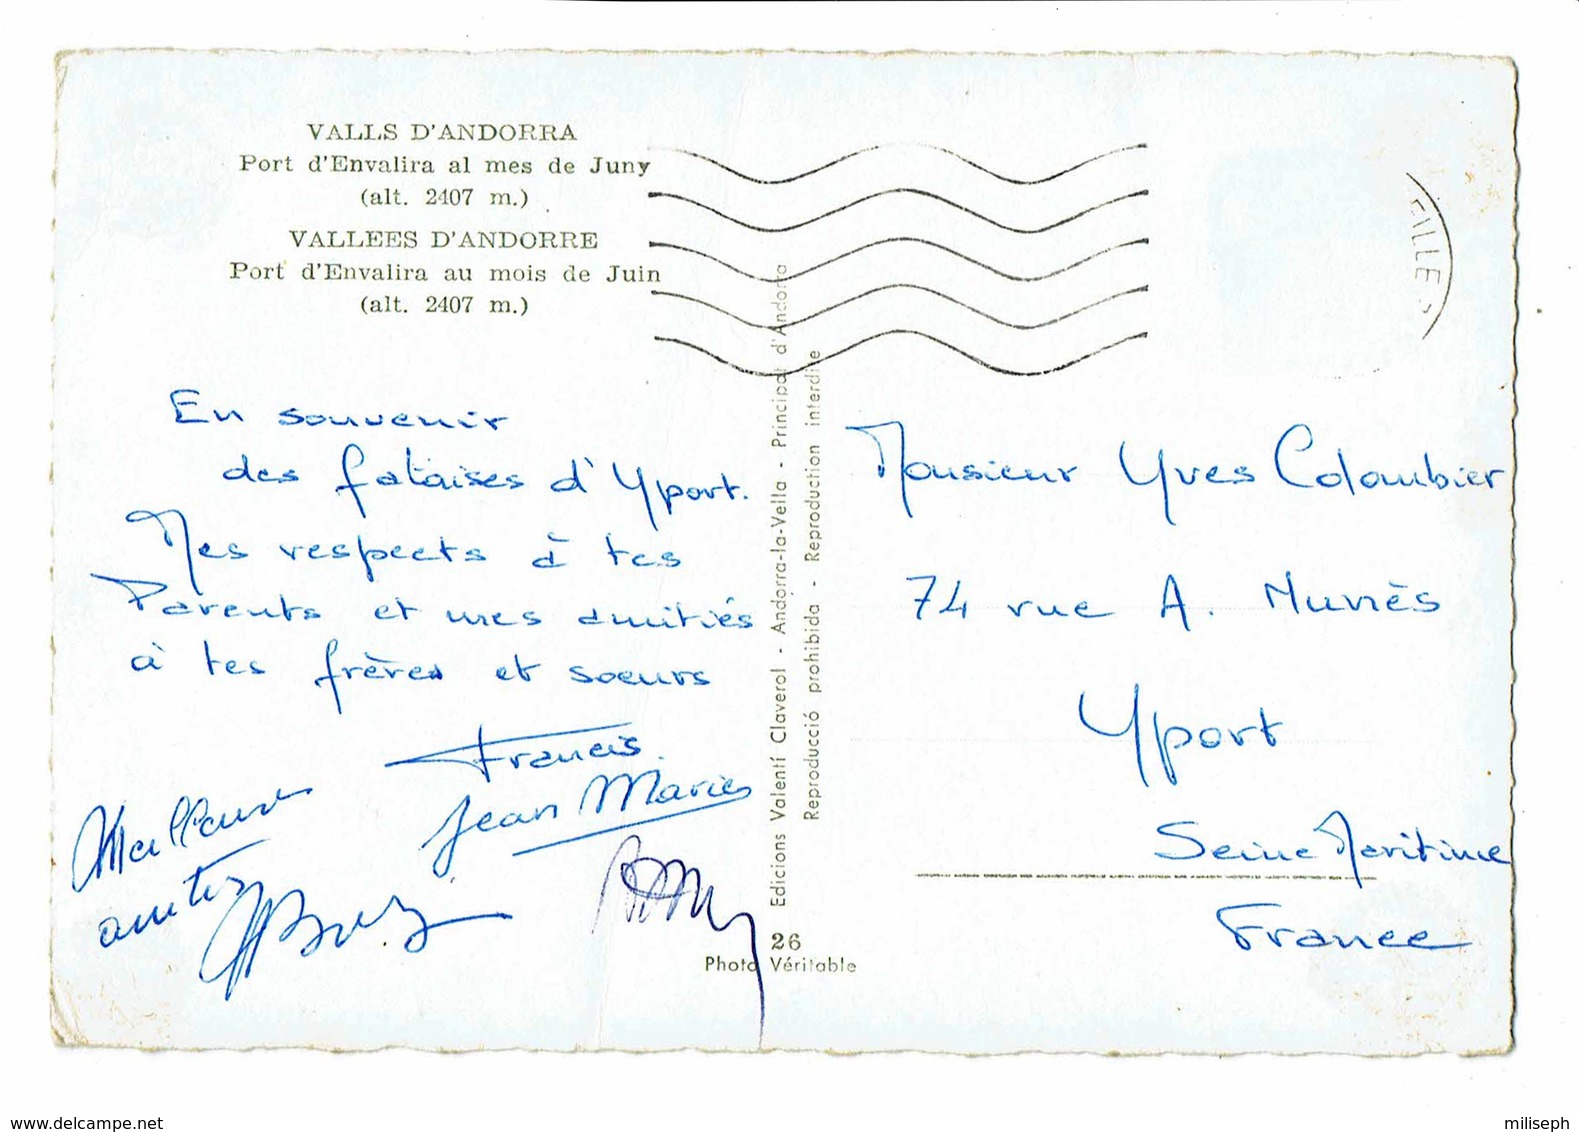 VALLS D'ANDORRA
Port d'Envalira al mes de Juny
(alt. 2407 m.)
VALLEES D'ANDORRE
Port d'Envalira au mois de Juin
(alt. 2407 m.)
En souvenir
des falaises d'Yport.
Mes respects à tes
Parents et mes amitiés
à tes frères et soeurs
Francis
Jean Marie
Meilleures
amitiés
Edicions Valentí Claverol - Andorra-la-Vella - Principat d'Andorra
Reproducció prohibida - Reproduction interdite
26
Photo Véritable
Monsieur Yves Colombier
74 rue A. Nunès
Yport
Seine Maritime
France
www.delcampe.net
miliseph